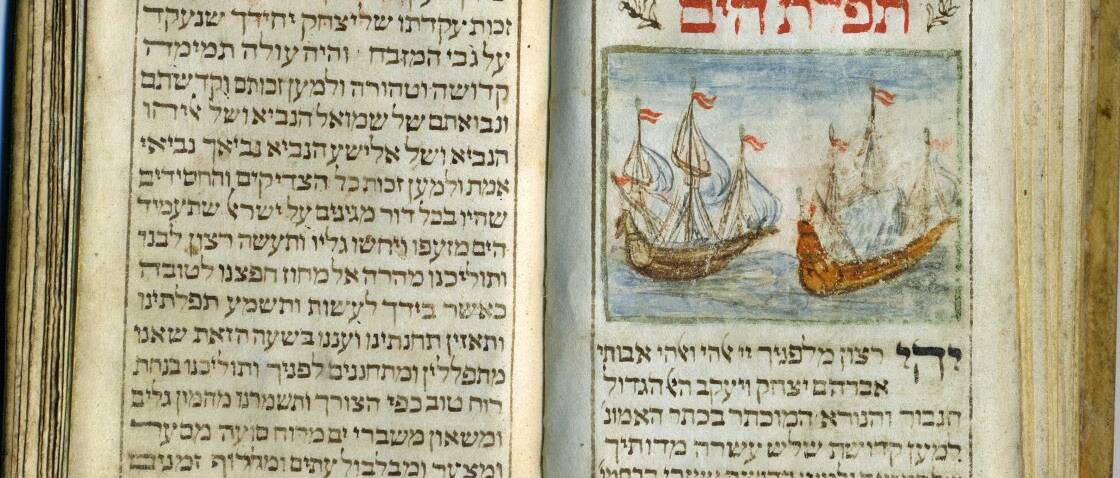 תפלת הים
יהי רצון מלפניך יי ﭏהי וﭏהי אבותי
אברהם יצחק ויעקב הﭏ הגדול
הגבור והנורא המוכתר בכתר האמונ'
למען קדושת שליש עשרה מדותיך
זכות עקדתו של יצחק יחידך שנעקד
על גבי המזבח והיה עולה תמימה
קדושה וטהורה ולמען זכותם וקדשתם
ונבואתם של שמואל הנביא ושל אליהו
הנביא ושל אלישע הנביא נביאך נביאי
אמת ולמען זכות כל הצדיקים והחסידים
שהיו בכל דור מגינים על ישרﭏ שתעמיד
הים מזעפו ויחשו גליו ותעשה רצון לבני
ותוליכנו מהרה אל מחוז חפצנו לטובה
כאשר בידך לעשות ותשמע תפלתינו
ותאזין תחנתינו ועננו בשעה הזאת שאנו
מתפללין ומתחננים לפניך ותוליכנו בנחת
רוח טוב כפי הצורך ותשמרנו מהמון גלים
ומשאון משברי ים מרוח סועה מסער
ומצער ומבלבול עתים ומחלוף זמנים